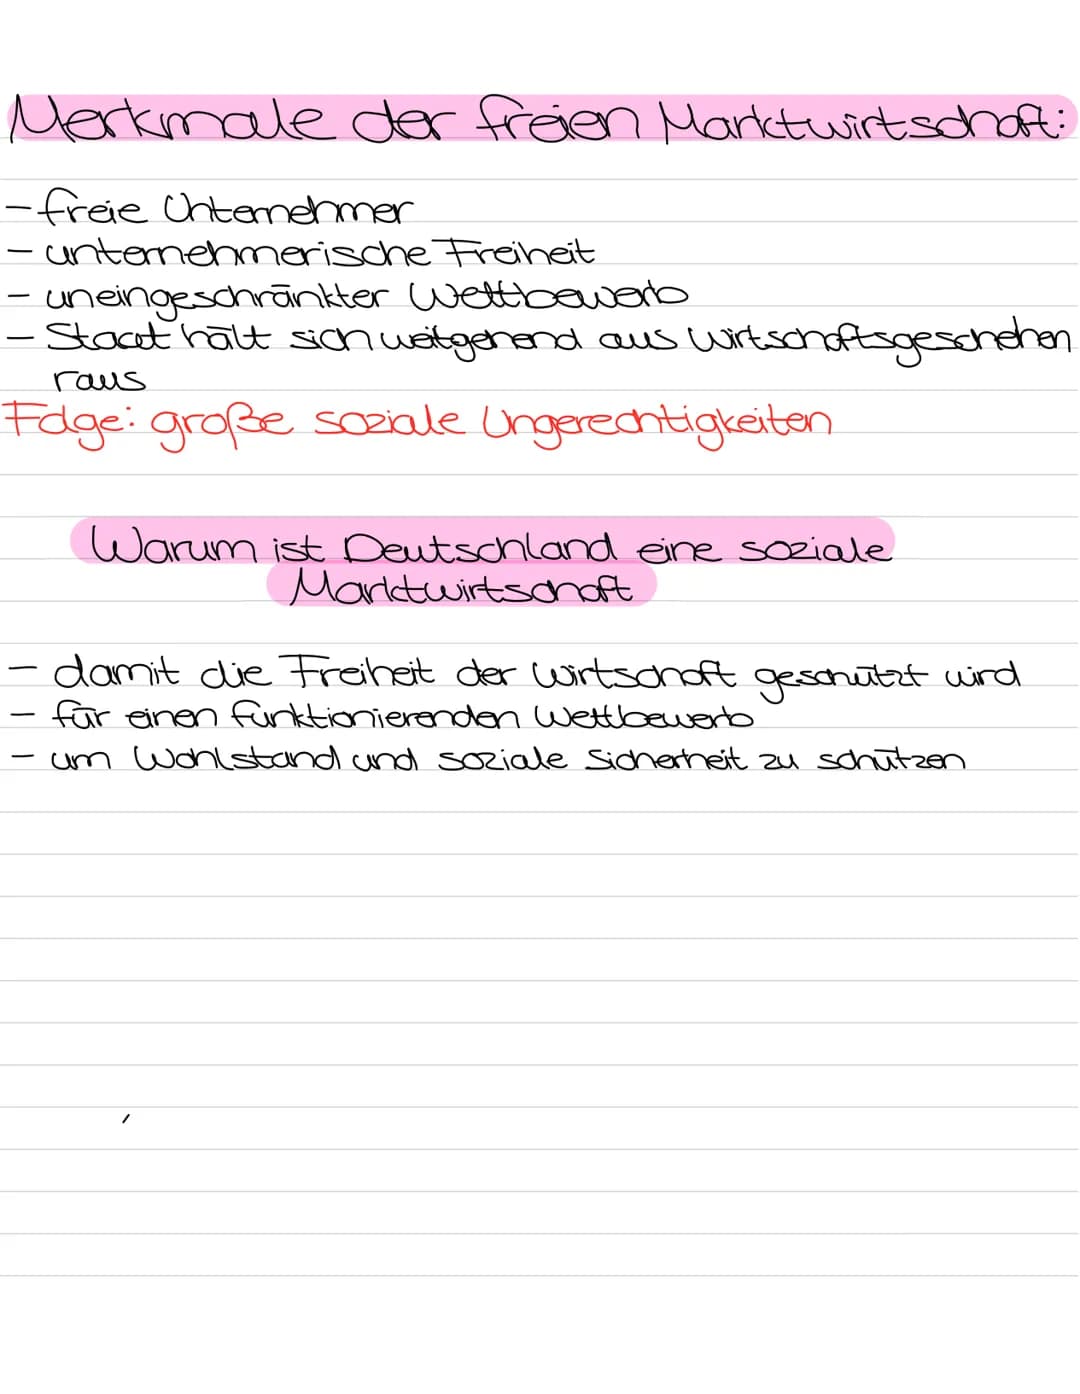 Merkmale der freien Marktwirtschaft:
- freie Unternehmer
- unternehmerische Freiheit
- uneingeschränkter Wettbewerb
- Staat hält sich weitgehend aus Wirtschaftsgeschehen
raus
Folge: große soziale Ungerechtigkeiten
Warum ist Deutschland eine soziale
Marktwirtschaft
- damit die Freiheit der Wirtschaft geschützt wird
- für einen funktionierenden Wettbewerb
- um Wohlstand und soziale Sicherheit zu schützen